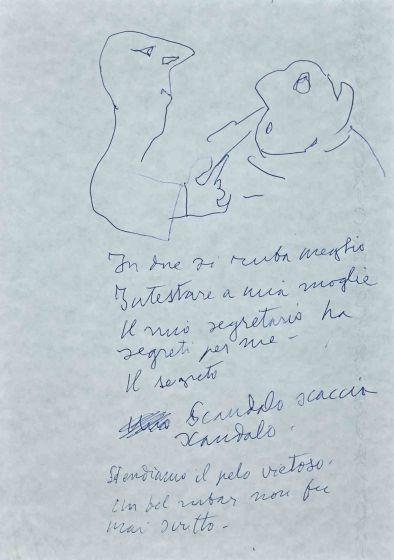 In due si ruba meglio
Intestare a mia moglie
Il mio segretario ha
segreti per me -
Il segreto
Scandalo scaccia
scandalo.
Stendiamo il velo pietoso.
un bel rubar non fu
mai scritto -